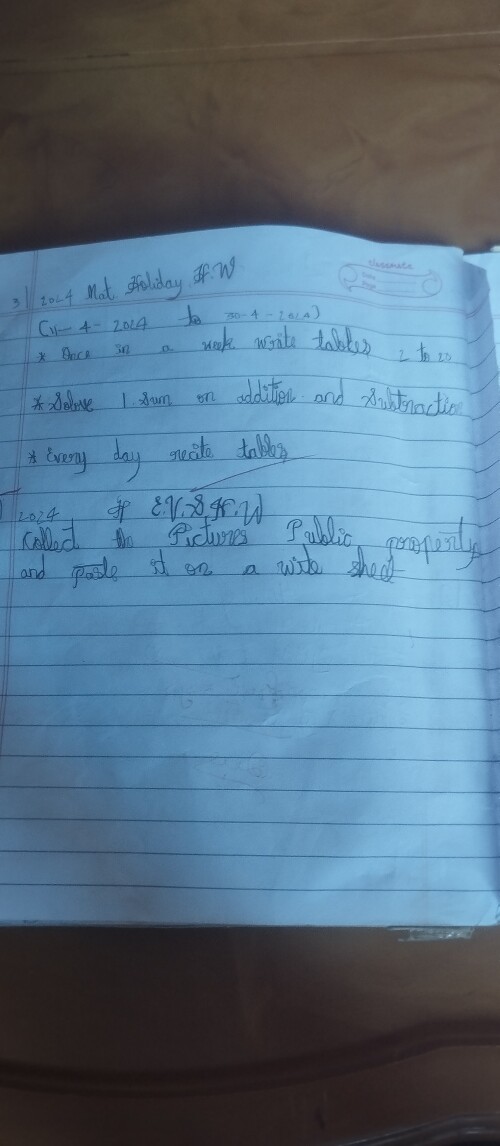 classmate
Date
Page
3| 2024 Mat. Holiday H.W
- 4 - 2024 to 30-4-2024)
* Once in a week write tables 2 to 20
* Solve 1 Sum on addition and Subtraction
* Every day recite tables
2024 E.V.S H.W
Collect the Pictures Public property
and paste it on a wite sheet